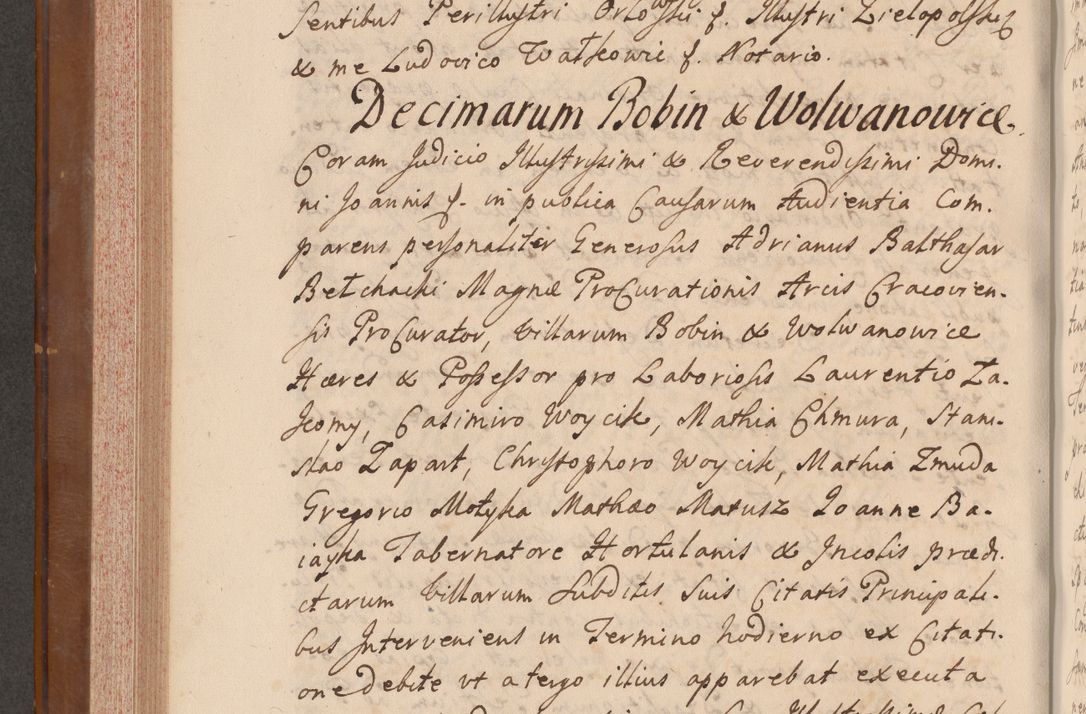 sentibus Perillustri Orłowski f. Illustri Zielopolski
& me Ludovico Watkowic f. Notario.
Decimarum Bobin & Wolwanowice.
Coram Judicio Illustrissimi & Reverendissimi Domi-
ni Joannis f. in publica Causarum Audientia Com-
parens personaliter Generosus Adrianus Balthasar
Bełchacki Magnæ ProCurationis Arcis Cracovien-
sis ProCurator, villarum Bobin & Wolwanowice
Hæres & Possessor pro Laboriosis Laurentio Za-
Komy, Casimiro Woycik, Mathia Chmura, Stani-
slao Zapart, Christophoro Woycik, Mathia Zmuda
Gregorio Motyka Mathæo Matusz Joanne Ba-
iayka Tabernatore Hortulanis & Incolis prædi-
ctarum villarum Subditis Suis Citatis Principali-
bus Interveniens in Termino hodierno ex Citati-
one debite vt a tergo illius apparebat executa